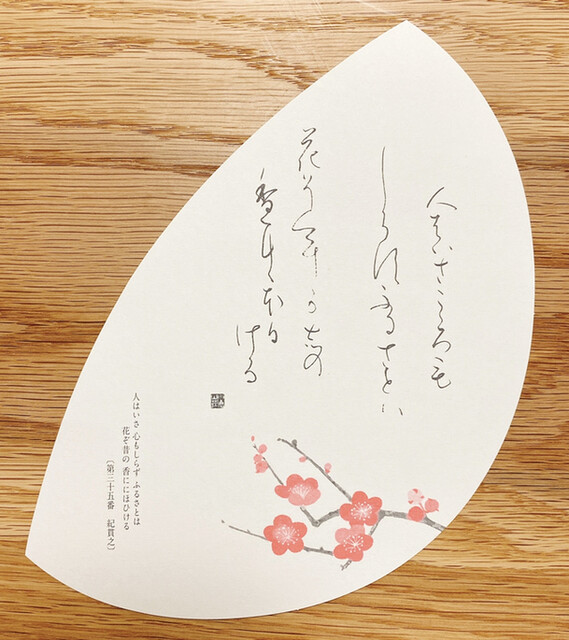 人はいさこころも
しらすふるさとは
花そむかしの
香ににほひ
ける
人はいさ 心もしらず ふるさとは
花ぞ昔の 香ににほひける
〔第三十五番 紀貫之〕